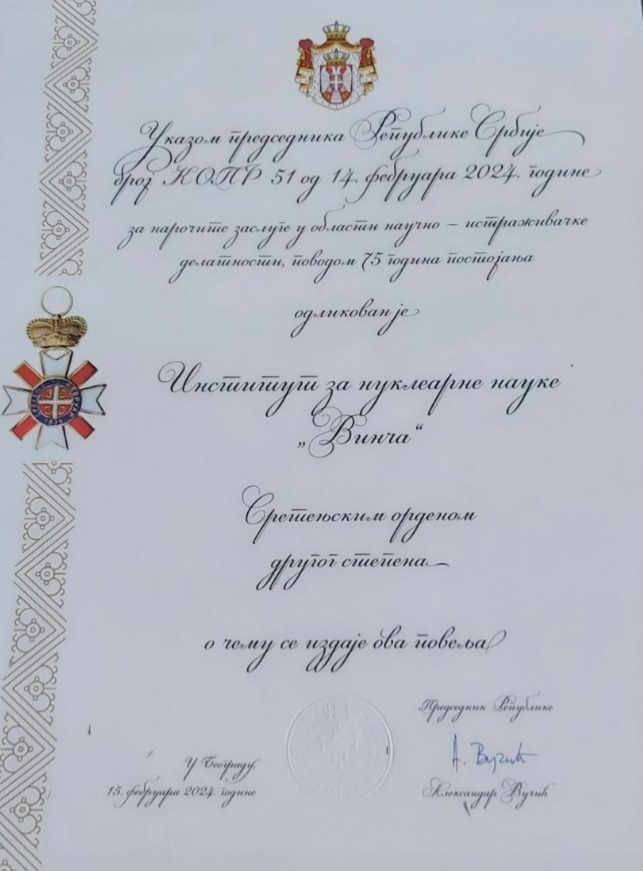 Указом председника Републике Србије
број КОПР 51 од 14. фебруара 2024. године
за нарочите заслуге у области научно – истраживачке
делатности, поводом 75 година постојања
одликован је
Институт за нуклеарне науке
„Винча“
Сретењским орденом
другог степена
о чему се издаје ова повеља
Председник Републике
А. Вучић
У Београду,
15. фебруара 2024. године
Александар Вучић